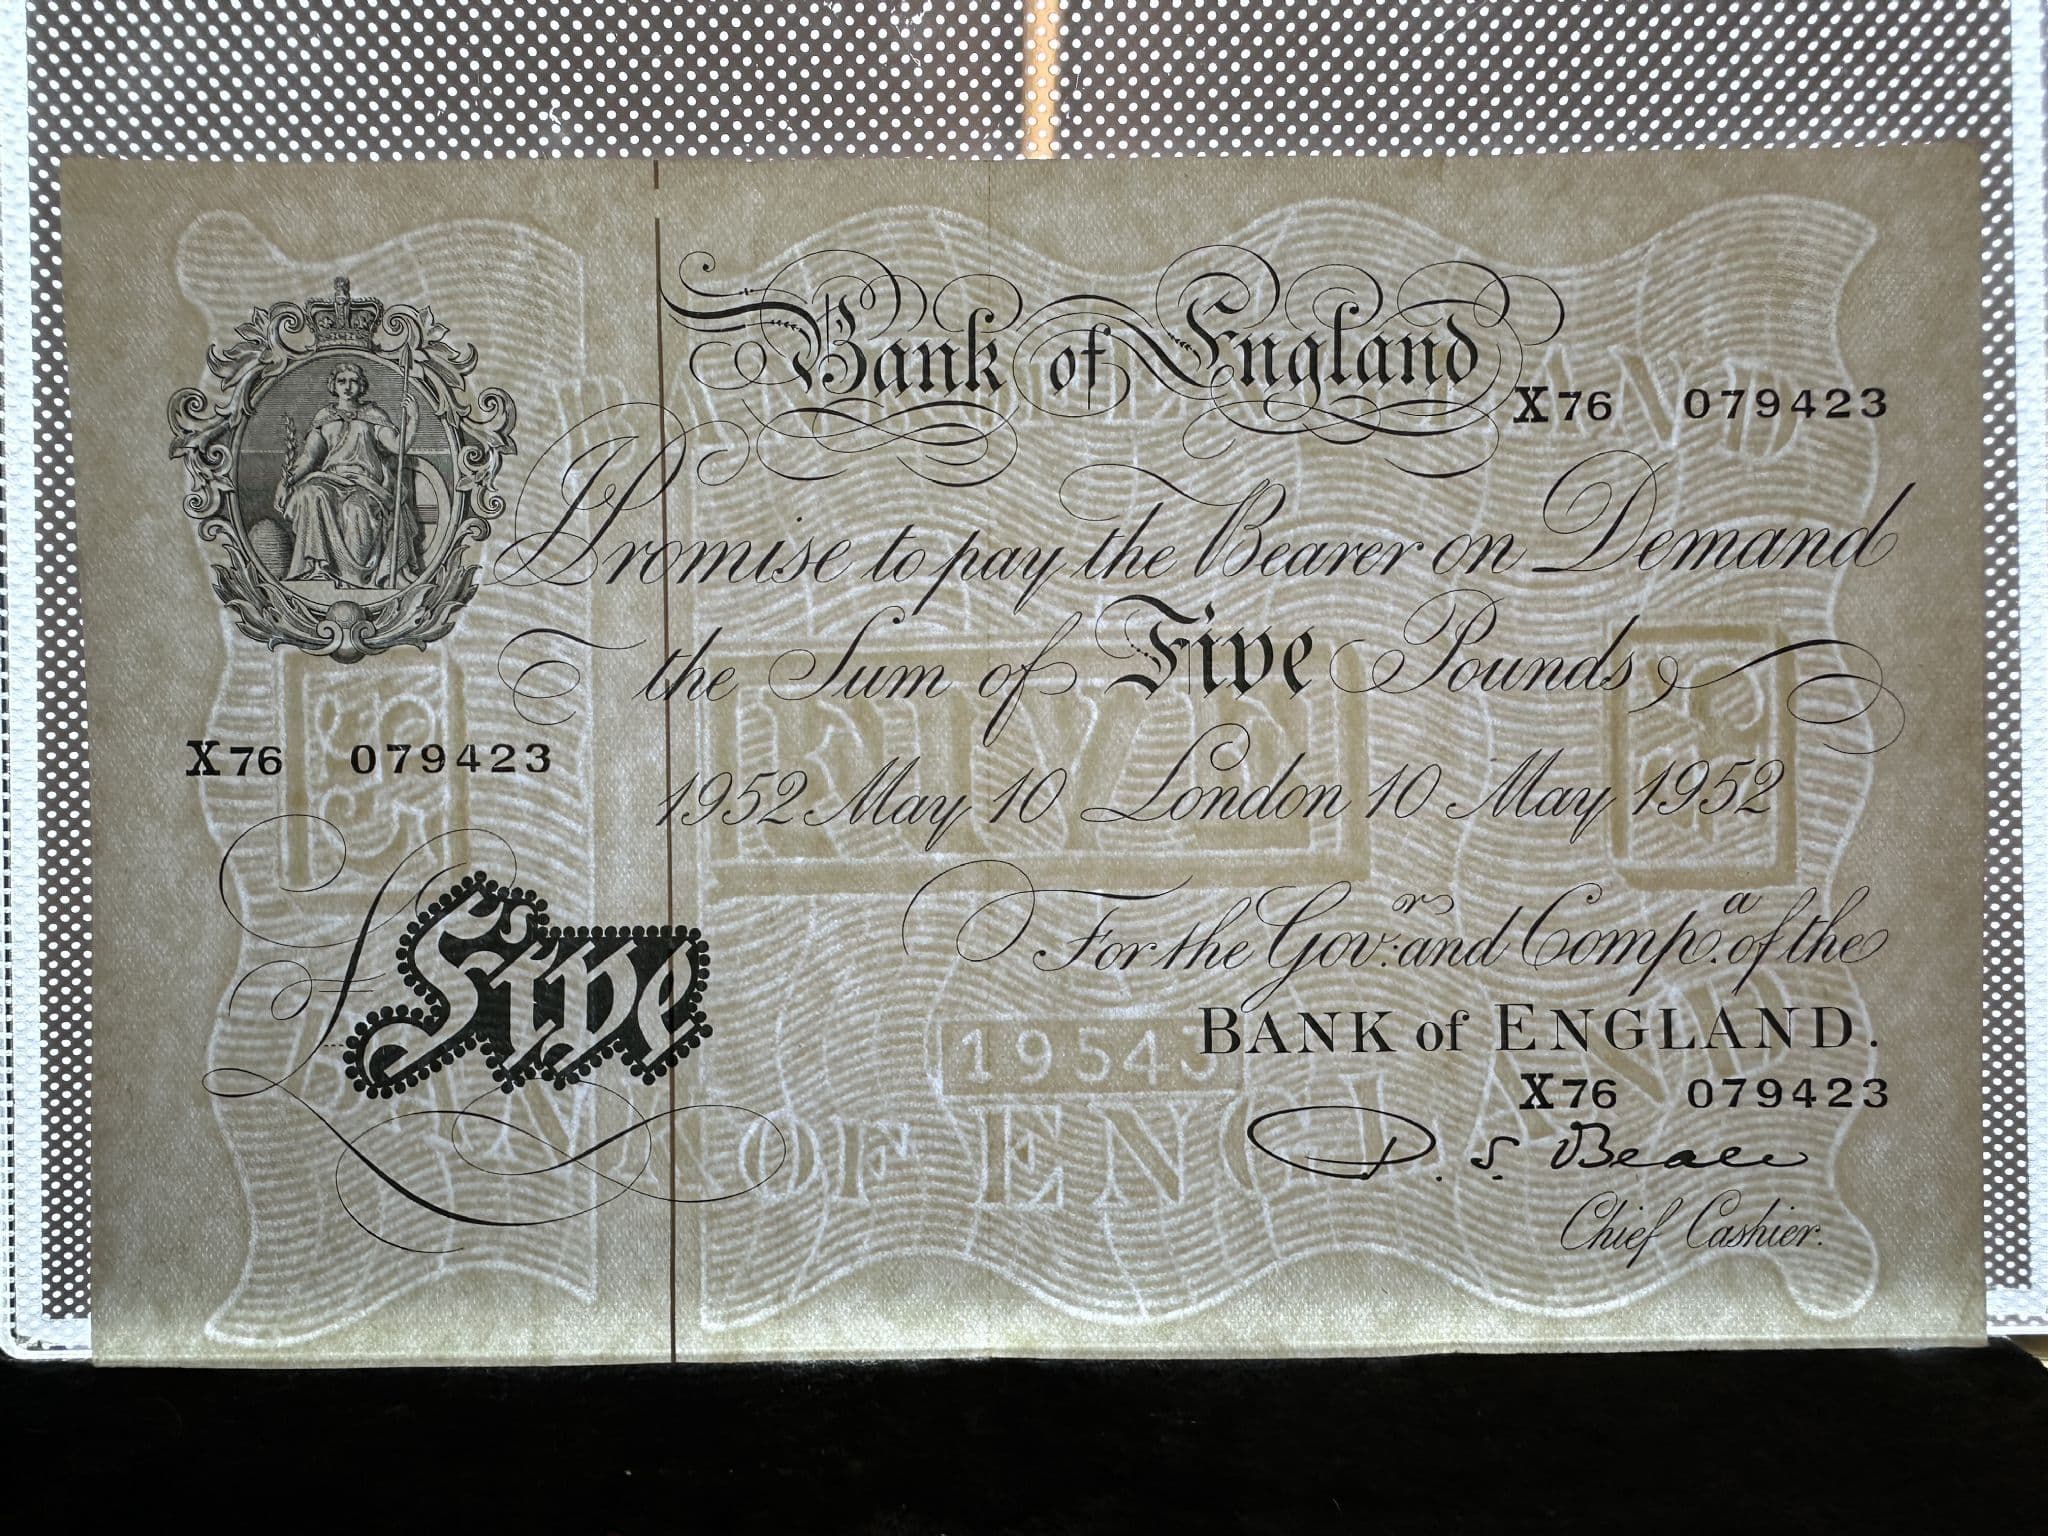 Bank of England
X76 079423
I Promise to pay the Bearer on Demand
the Sum of Five Pounds
X76 079423
1952 May 10 London 10 May 1952
For the Govr. and Compa. of the
£Five
19543
BANK of ENGLAND.
X76 079423
D. S. Beale
Chief Cashier.
BANK OF ENGLAND
FIVE